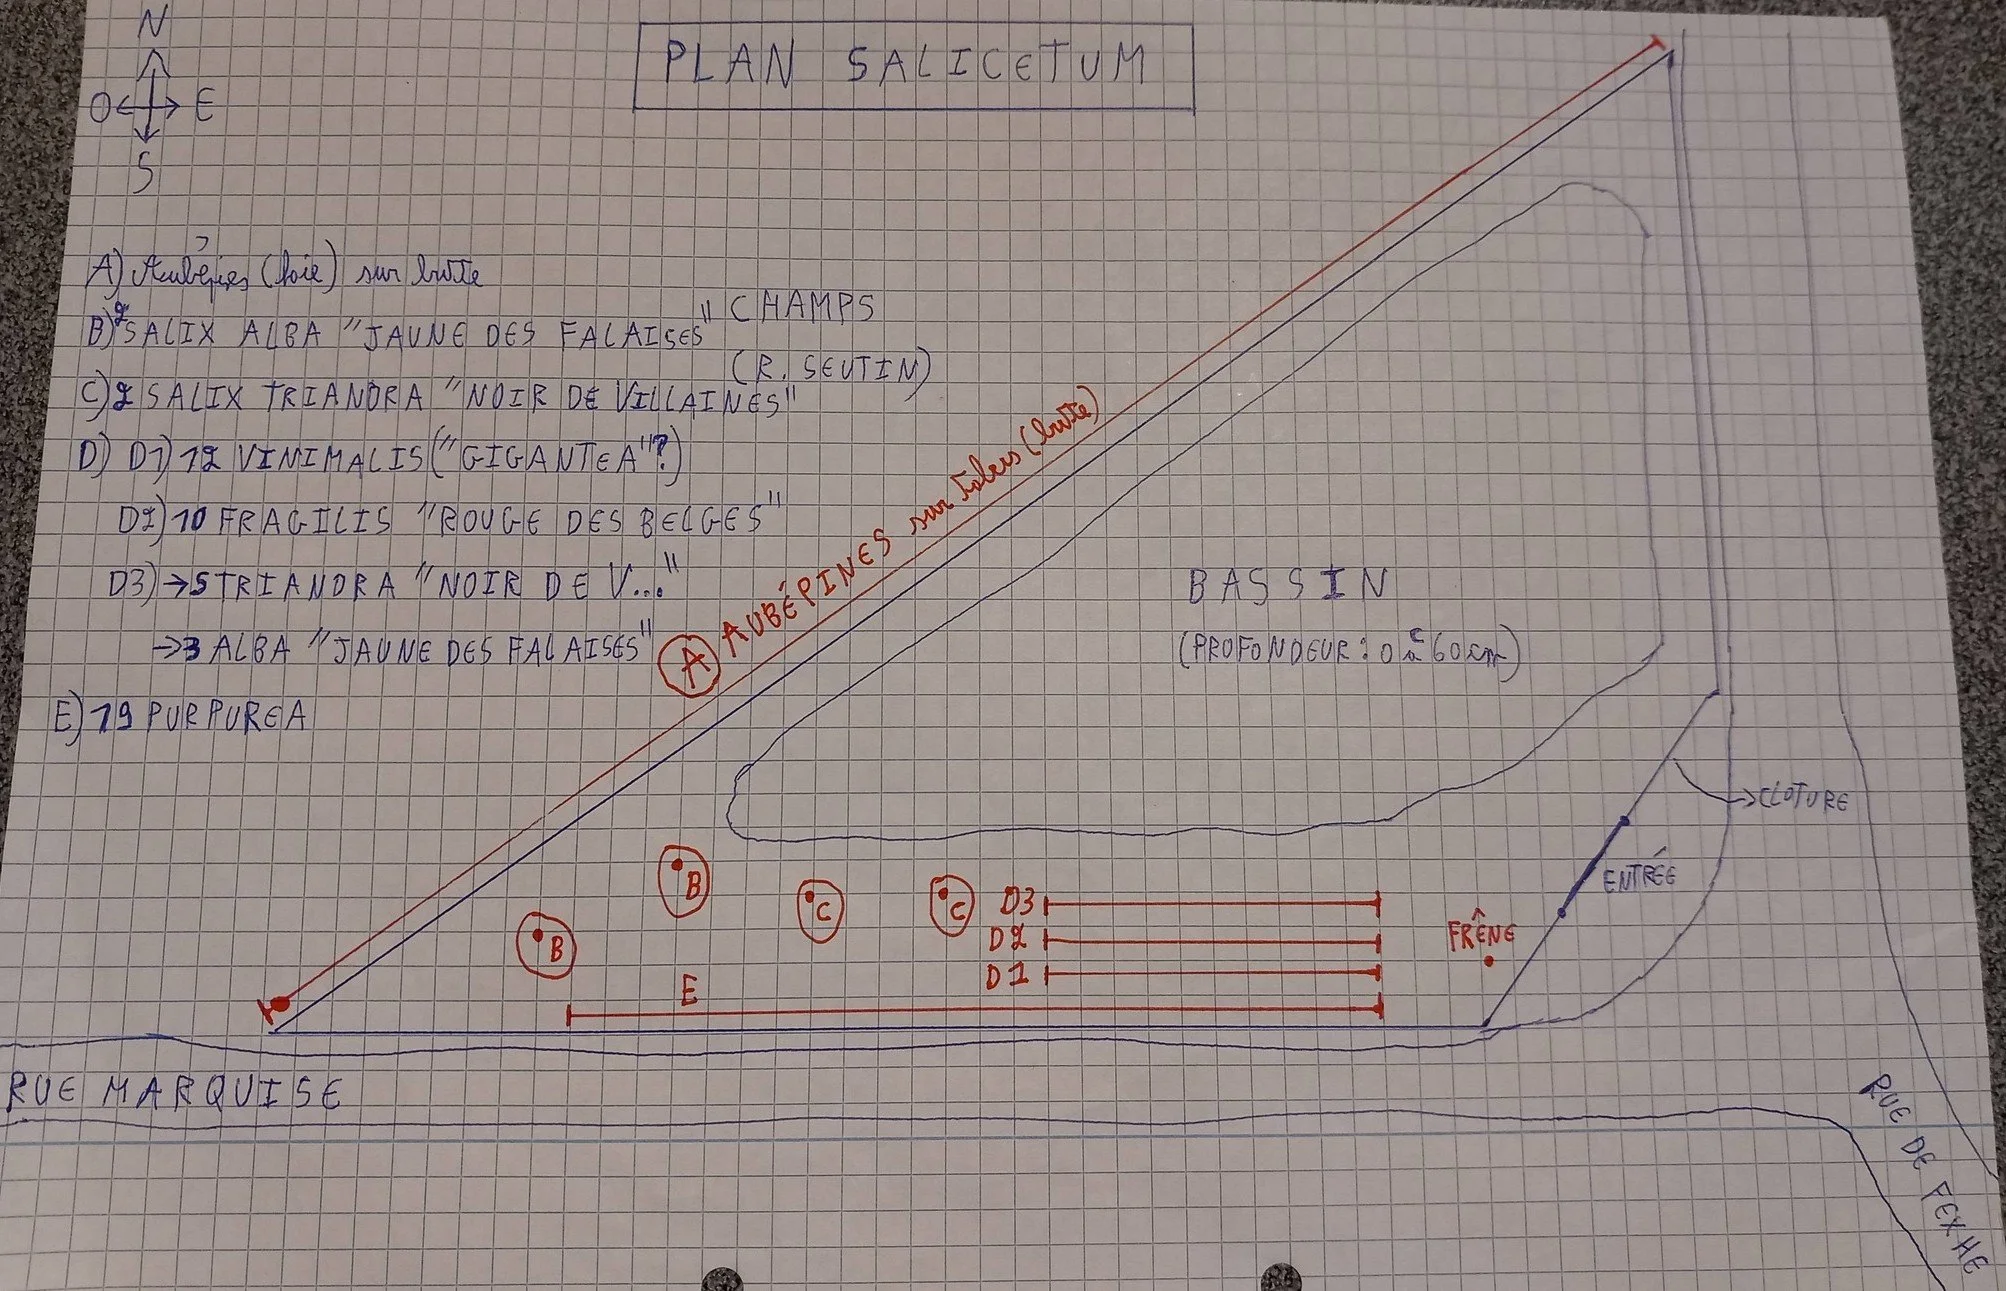 N
PLAN SALICETUM
O E
S
A) Aubépines (haie) sur butte
B) 2 SALIX ALBA "JAUNE DES FALAISES"
CHAMPS
(R. SEUTIN)
C) 2 SALIX TRIANDRA "NOIR DE VILLAINES"
D) D1) 12 VINIMALIS ("GIGANTEA"?)
D2) 10 FRAGILIS "ROUGE DES BELGES"
D3) → 5 TRIANDRA "NOIR DE V..."
→ 3 ALBA "JAUNE DES FALAISES"
E) 19 PURPUREA
A AUBÉPINES sur talus (butte)
BASSIN
(PROFONDEUR : 0 à 60 cm)
CLOTURE
ENTRÉE
B
B
C
C
D3
D2
D1
FRÊNE
E
RUE MARQUISE
RUE DE FEXHE